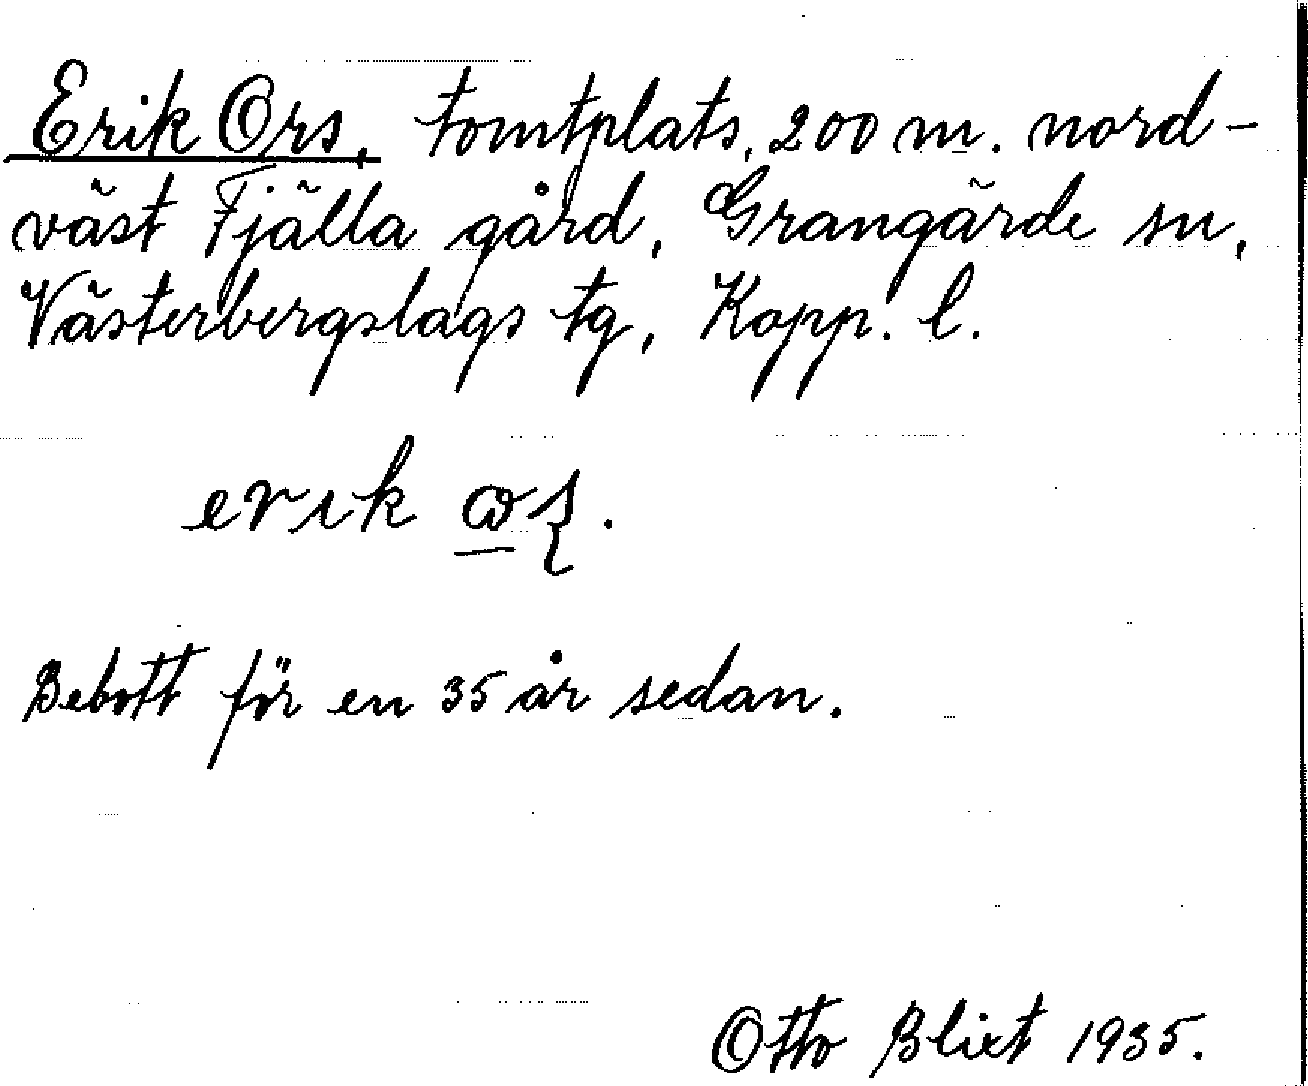 Erik Ors, tomtplats, 200 m. nord-
väst Fjälla gård, Grangärde sn,
Västerbergslags tg, Kopp. l.
erik
Bebott för en 35 år sedan.
Otto Blixt 1935.